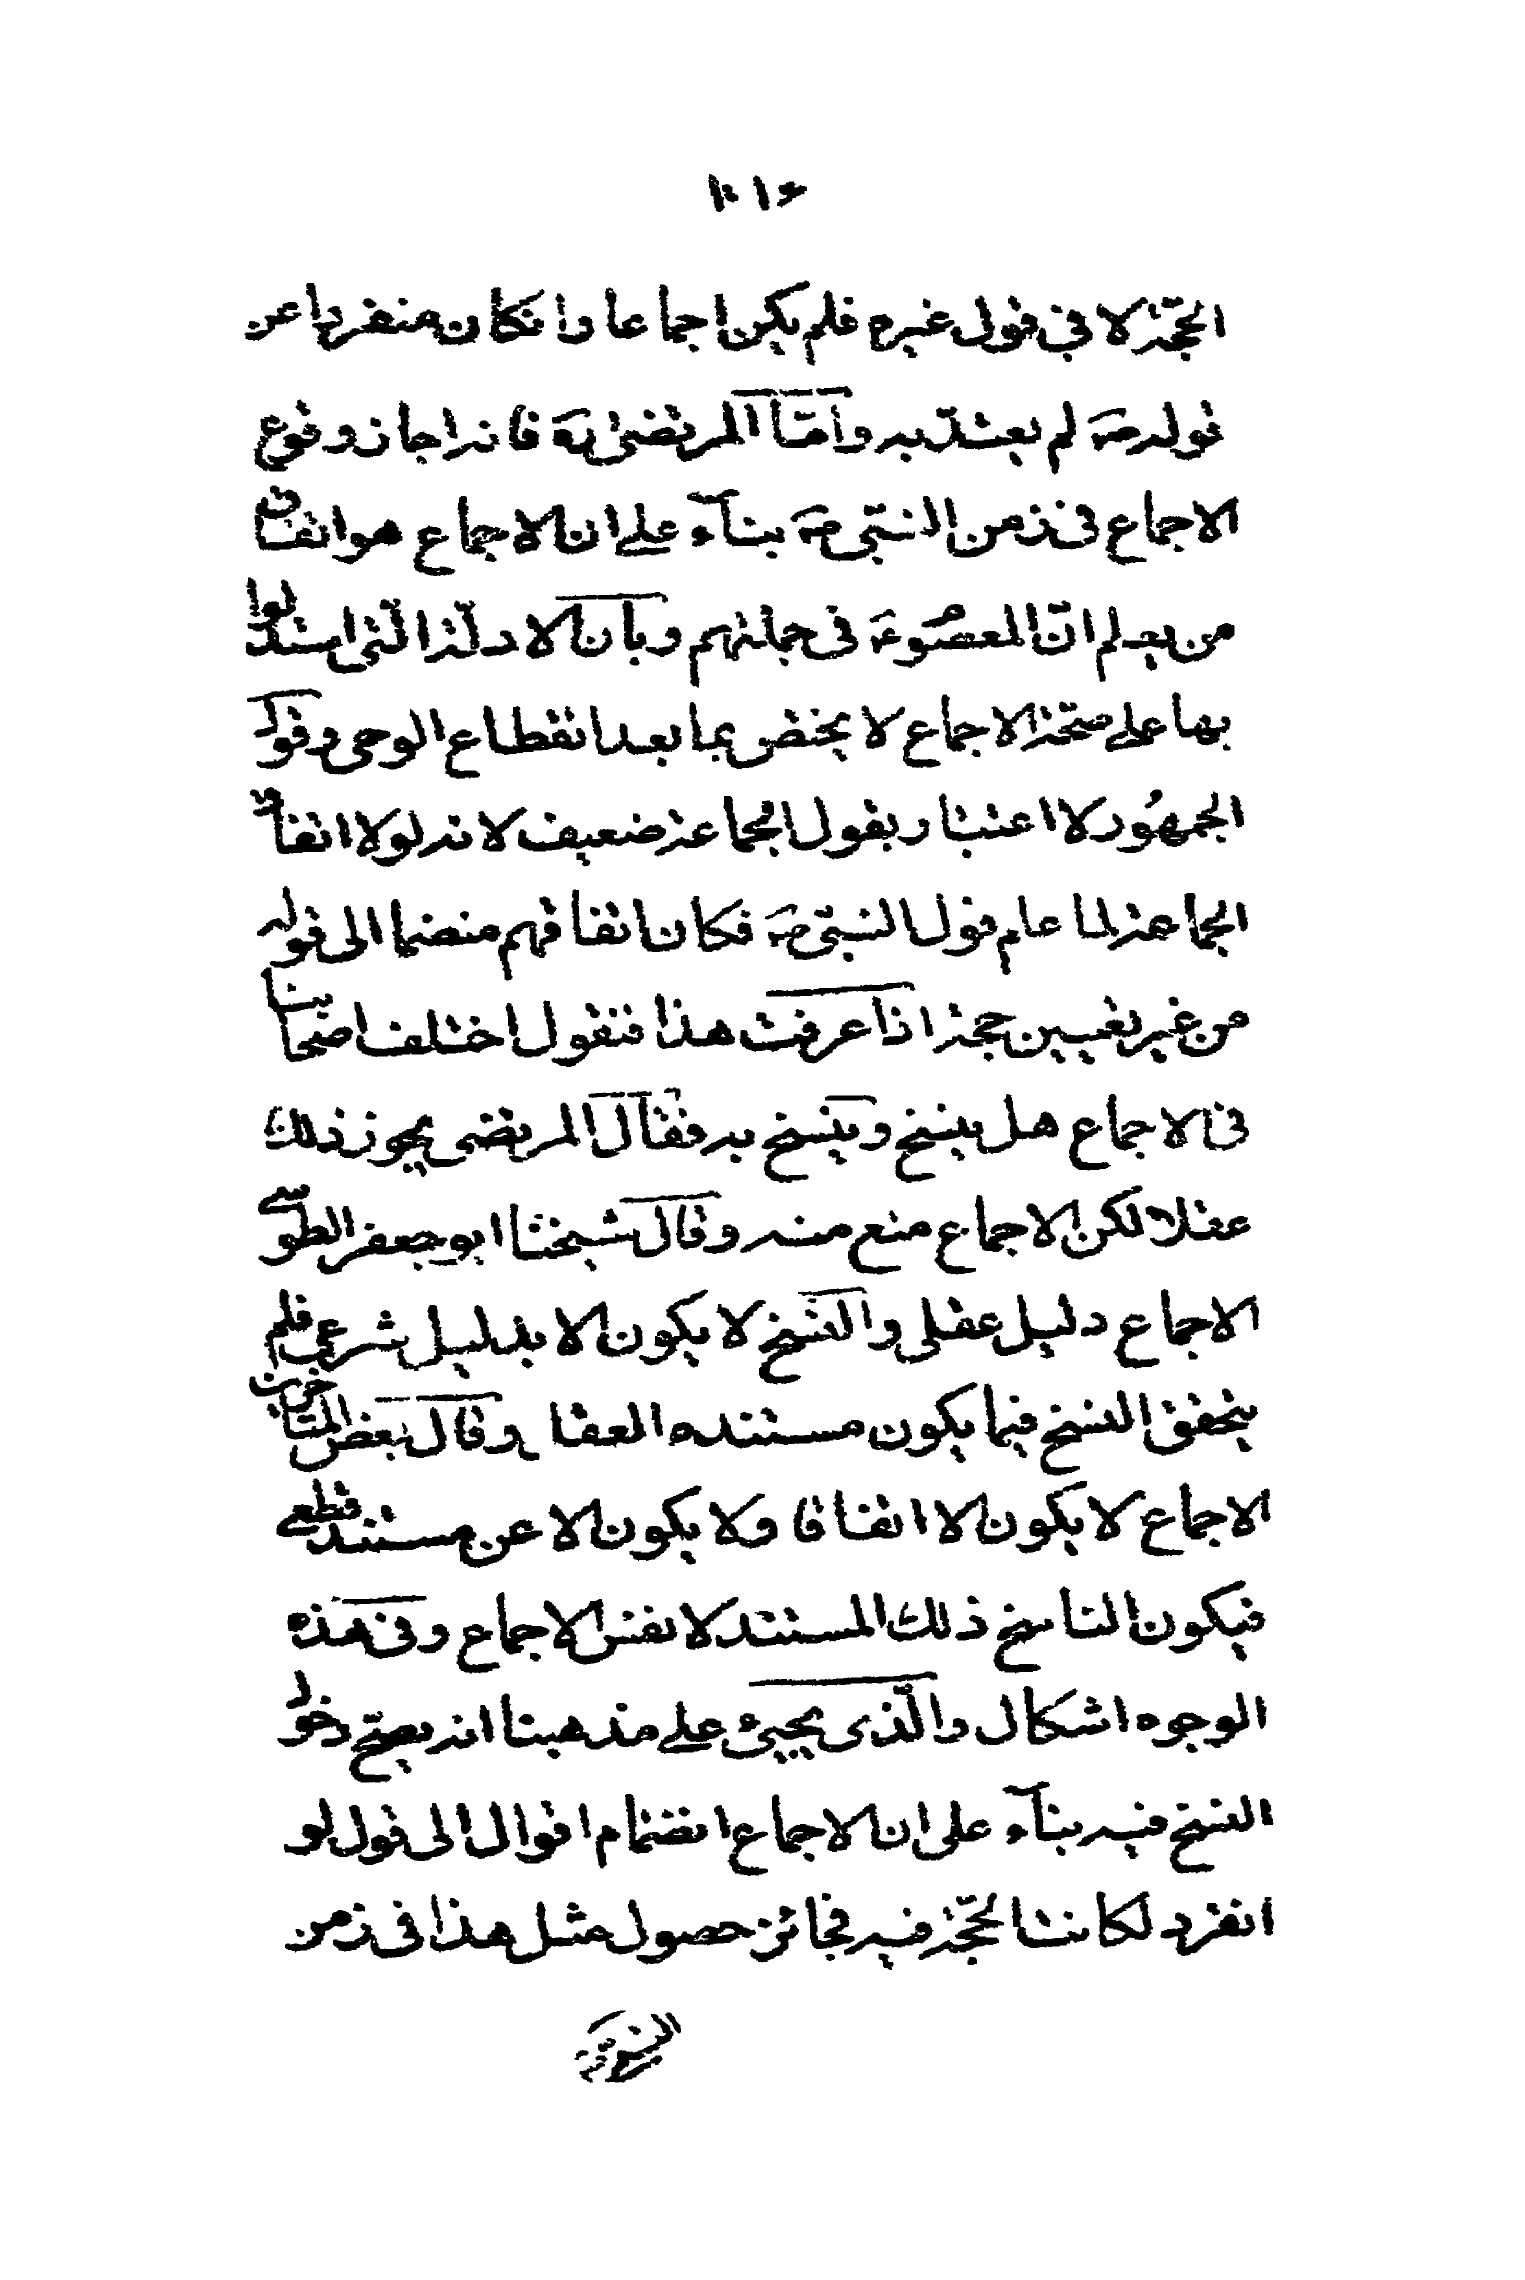 الحجّة لا في قول غيره فلم يكن اجماعا وان كان منفردا عن
قوله صه لم يعتدّ به وامّا المرتضى ره فانه اجاز وقوع
الاجماع فى زمن النبىّ صه بنآء على ان الاجماع هو اتفاق
من يعلم انّ المعصوم عه فى جملتهم وبان الادلّة الّتى استدلوا
بها على صحّة الاجماع لا يختص بما بعد انقطاع الوحى وقول
الجمهُور لا اعتبار بقول الجماعة ضعيف لانه لولا اتفاق
الجماعة لما علم قول النبىّ صه فكان اتفاقهم منضما الى قوله
من غير تعيين حجة اذا عرفت هذا فنقول اختلف اصحابنا
فى الاجماع هل ينسخ وينسخ به فقال المرتضى يجوز ذلك
عقلا لكن الاجماع منع منه وقال شيخنا ابو جعفر الطوسے
الاجماع دليل عقلى والنسخ لا يكون الا بدليل شرعى فلم
يتحقق النسخ فيما يكون مستنده العقل وقال بعض المتاخرين
الاجماع لا يكون الا اتفاقا ولا يكون الا عن مستند قطعے
فيكون الناسخ ذلك المستند لا نفس الاجماع وفى هذه
الوجوه اشكال والّذى يجيئ على مذهبنا انه يصحّ دخول
النسخ فيه بنآء على ان الاجماع انضمام اقوال الى قول لو
انفرد لكانت الحجّة فيه فجائز حصول مثل هذا فى زمن